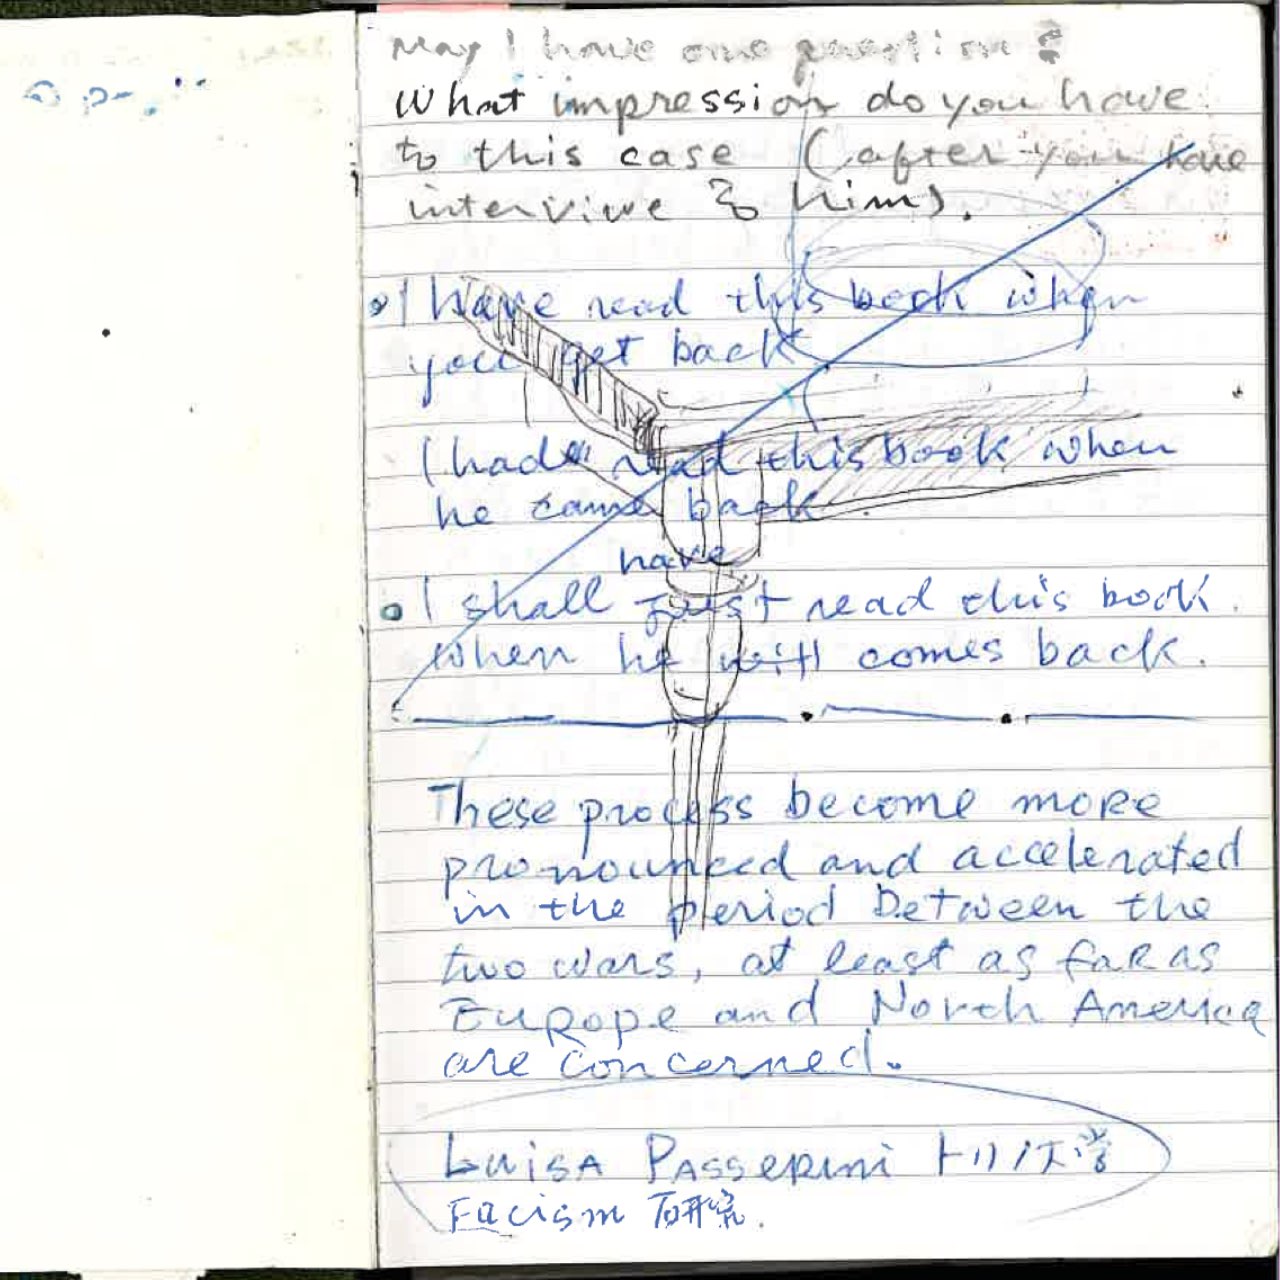 May I have one question?
What impression do you have
to this case (after you have
interviwe to him).
I have read this book when
you get back
I had read this book when
he came back
have
I shall just read this book.
when he will comes back.
These process become more
pronounced and accelerated
in the period between the
two wars, at least as far as
Europe and North America
are concerned.
Luisa Passerini トリノ大学
Facism 研究.